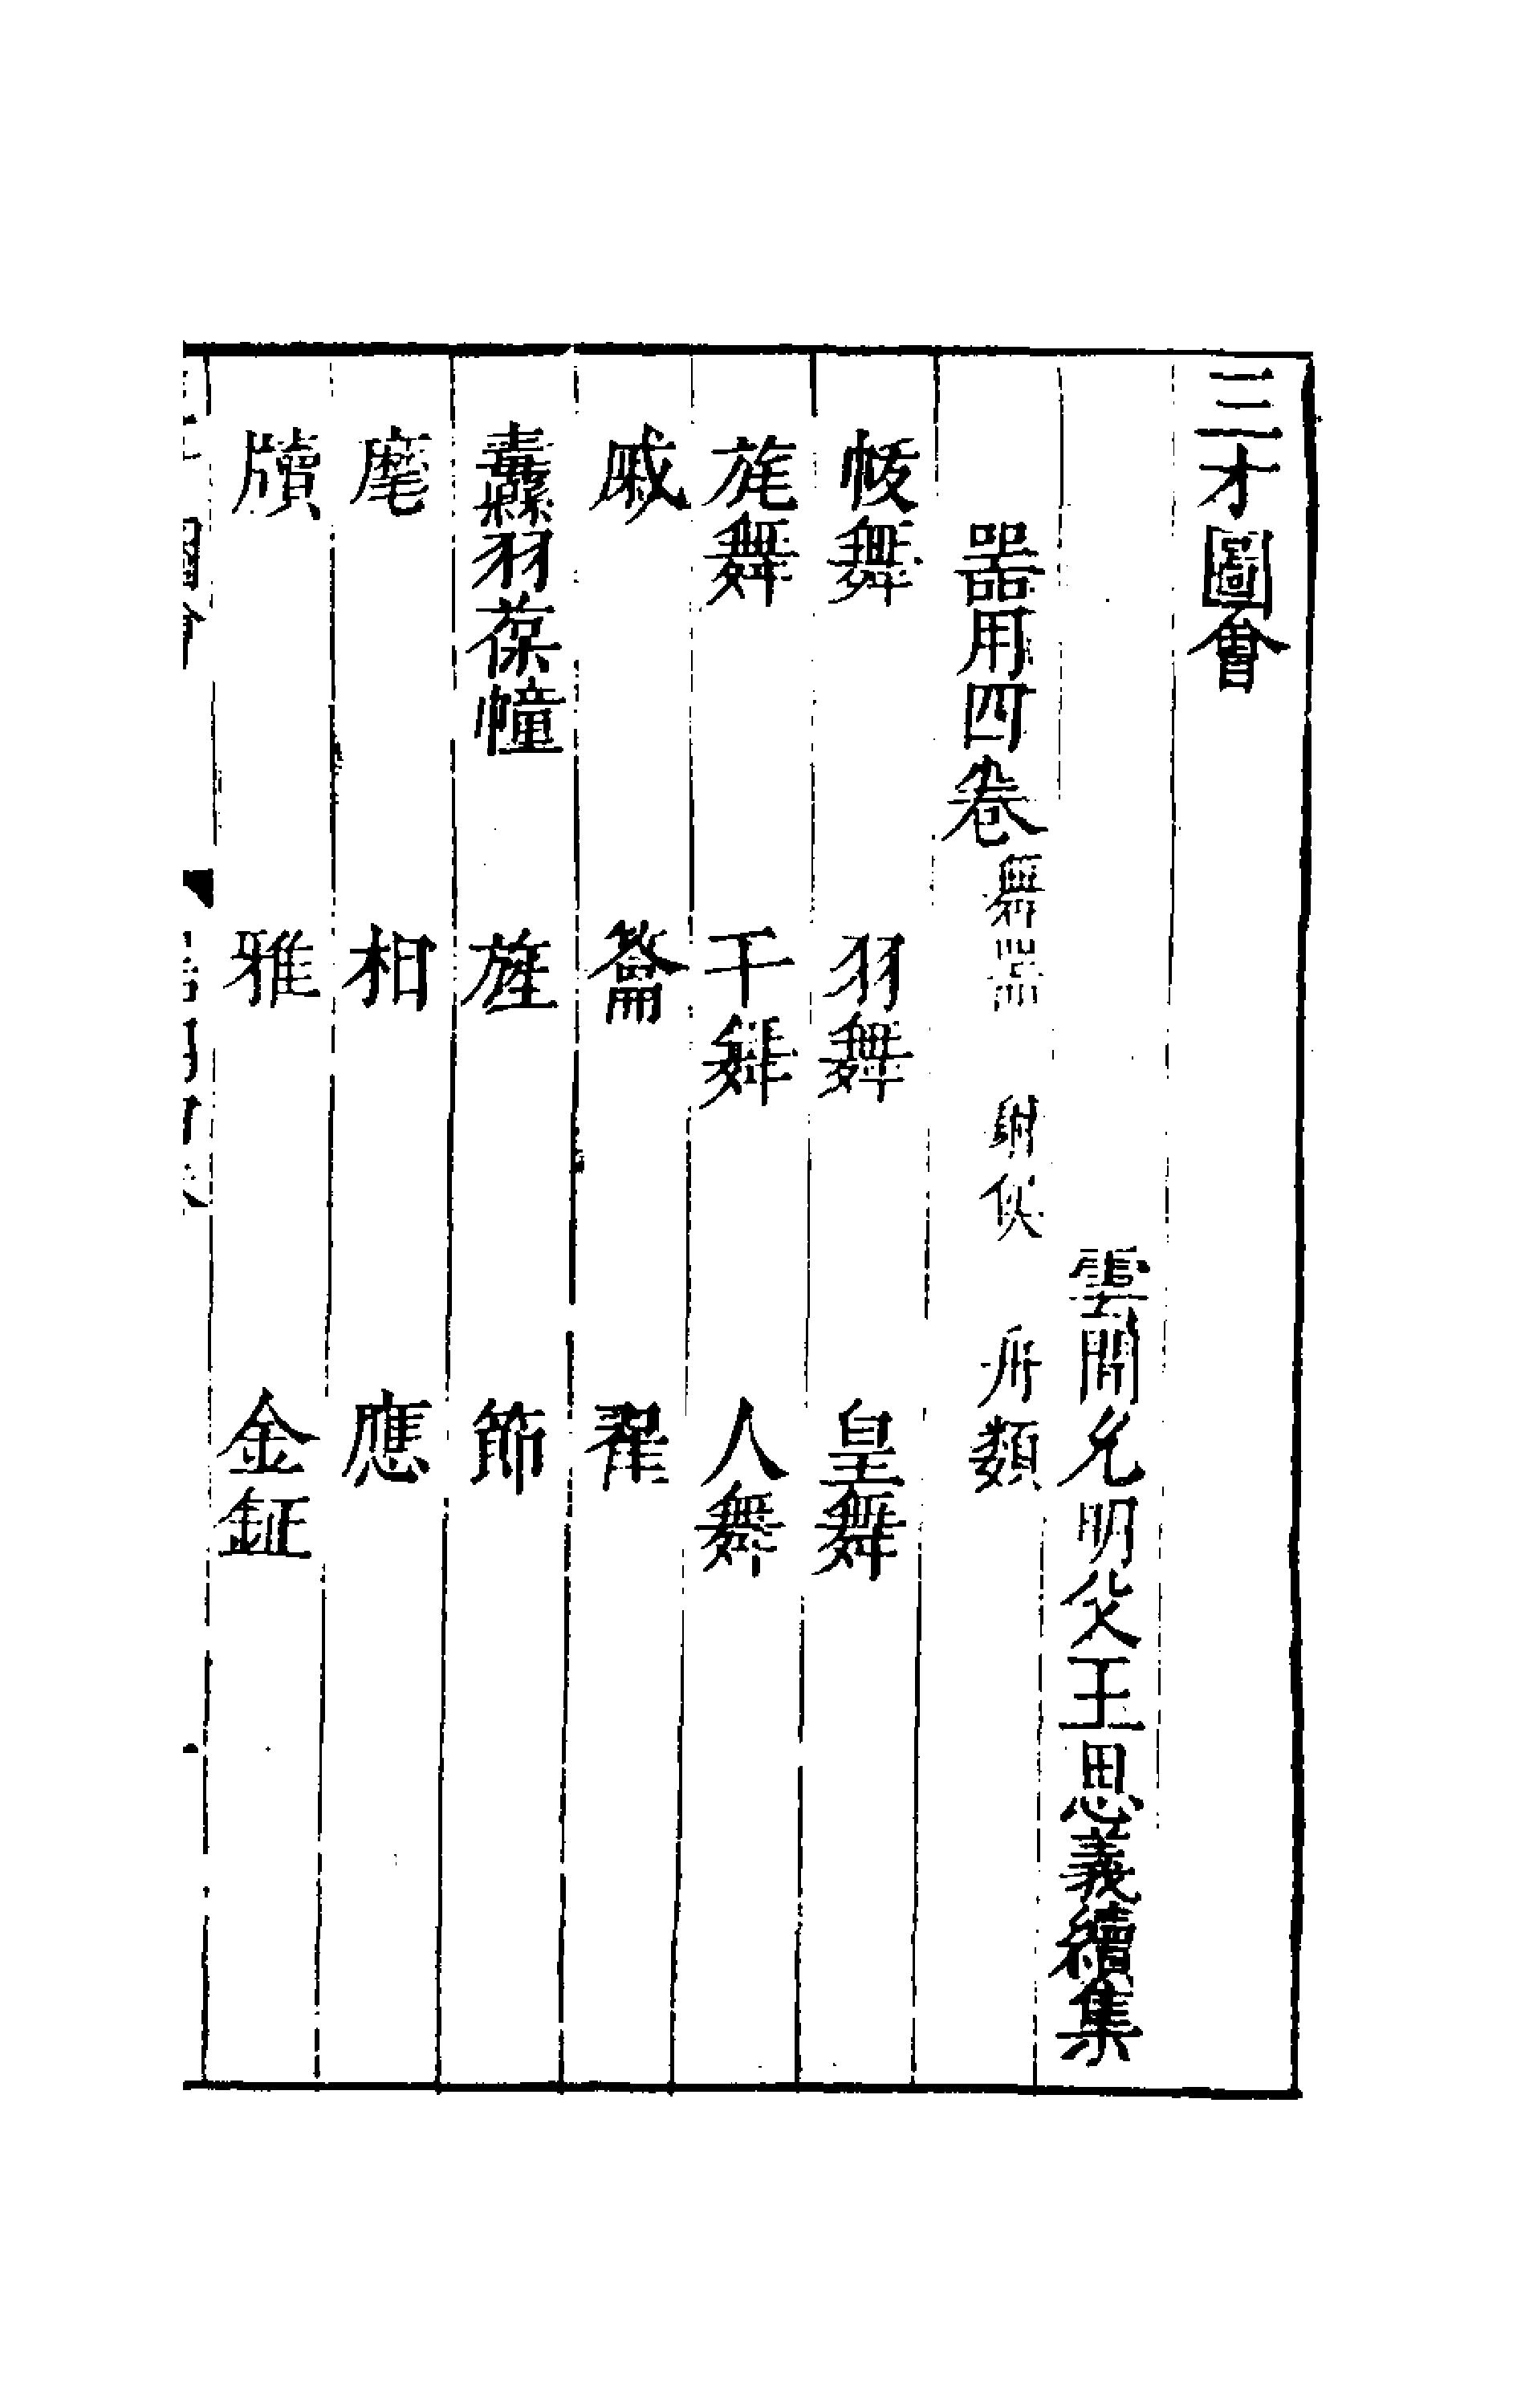 三才圖會
雲間允明父王思義續集
器用四卷 舞器 射侯 舟類
帗舞 羽舞 皇舞
旄舞 干舞 人舞
戚 籥 翟
纛羽葆幢 旌 節
麾 相 應
牘 雅 金鉦